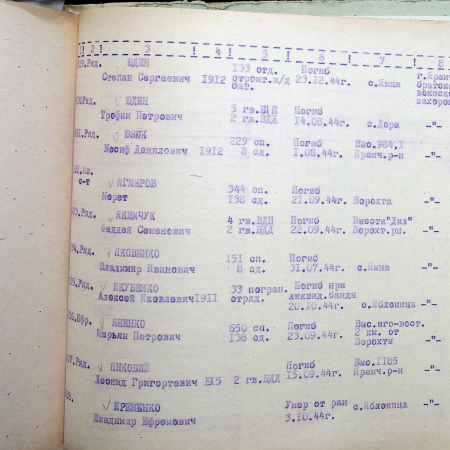 1 ! 2 ! 3 ! 4 ! 5 ! 6 ! 7 ! 8
Ряд. ЮДИН 193 отд. Погиб г.Яремч
Степан Сергеевич 1912 строит.ж/д 23.12.44г. с.Ямна братск
бат. воинск
захорон
Ряд. ЮДИН 5 гв.ВДП Погиб
Трофим Петрович 2 гв.ВДД 14.08.44г. с.Дора -"-
Ряд. 229 сп. Погиб Выс.984,1
Иосиф Данилович 1912 8 сд. 1.08.44г. Яремч.р-н -"-
с-т ЯГМУРОВ 344 сп. Погиб
Мерет 138 сд. 21.09.44г. Ворохта -"-
Ряд. ЯКИМЧУК 4 гв.ВДП Погиб Высота"Дил"
Фаддей Семенович 2 гв.ВДД 22.09.44г. Ворохт.рн. -"-
Ряд. ЯКОВЕНКО 151 сп. Погиб
Владимир Иванович 8 сд. 31.07.44г. с.Ямна -"-
Ряд. ЯКУБЕНКО 33 погран. Погиб при
Алексей Яковлевич 1911 отряд. ликвид.банды
20.10.44г. с.Яблоница -"-
Ефр. ЯНЕНКО 650 сп. Погиб Выс.юго-вост.
Марьян Петрович 138 сд. 23.09.44г. 2 км. от -"-
Ворохты
Ряд. ЯНКОВИЙ Погиб Выс.1185
Леонид Григорьевич 2 гв.ВДД 15.09.44г. Яремч.р-н -"-
ЯРЕМЕНКО Умер от ран с.Яблоница -"-
Владимир Ефремович 3.10.44г.